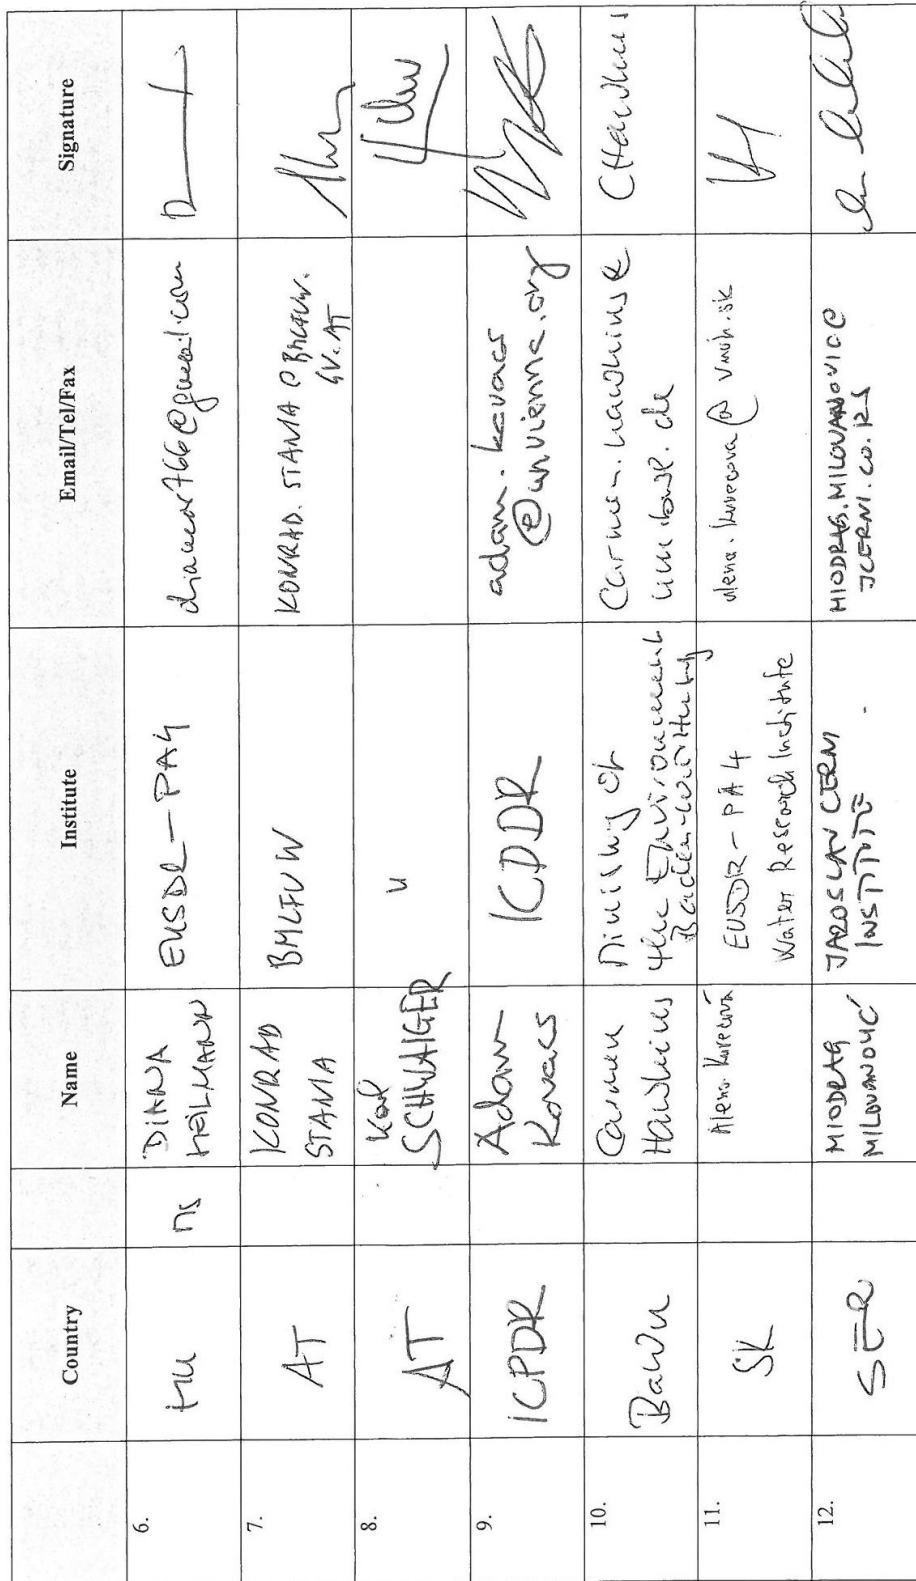 Country Name Institute Email/Tel/Fax Signature
6. HU ns DIANA HEILMANN EUSDR-PA4
7. AT KONRAD STANIA BMLFUW KONRAD.STANIA@BMLFUW.
GV.AT
8. AT Karl SCHWAIGER "
9. ICPDR Adam Kovacs ICPDR adam.kovacs
@unvienna.org
10. BaWü Carmen Hawkins Ministry of
the Environment
Baden-Württemberg
CHawkins
11. SK Alena Kurecová EUSDR-PA4
Water Research Institute
alena.kurecova@vuvh.sk
12. SER MIODRAG MILOVANOVIĆ JAROSLAV CERNI
INSTITUTE
MIODRAG.MILOVANOVIC@
JCERNI.CO.RS